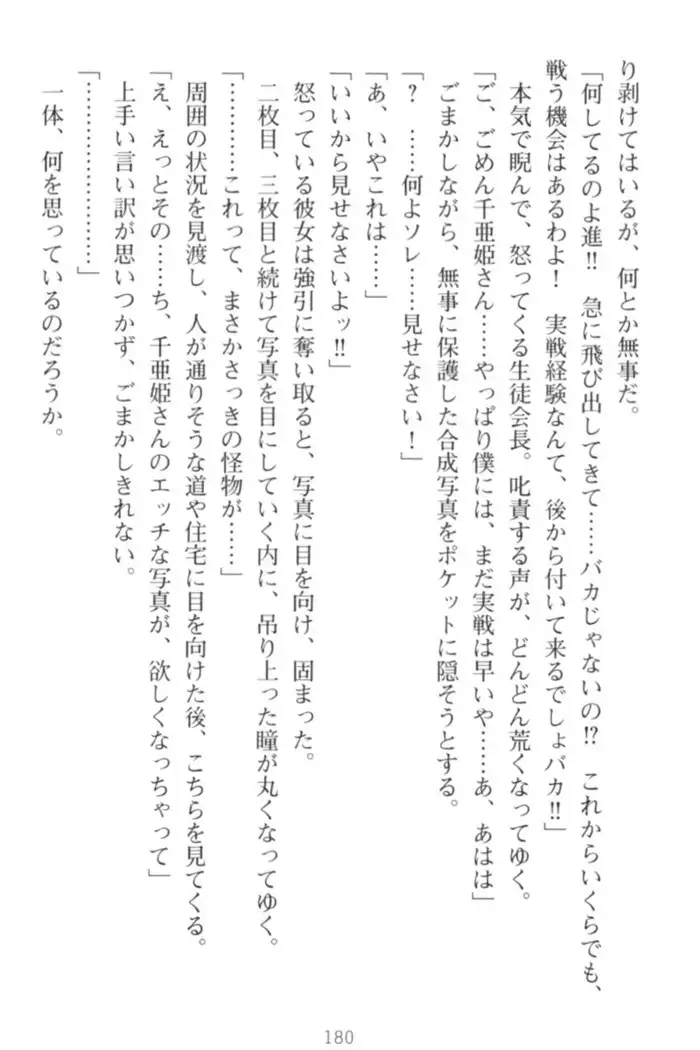 り剥けてはいるが、何とか無事だ。
「何してるのよ進!! 急に飛び出してきて……バカじゃないの!? これからいくらでも、
戦う機会はあるわよ！ 実戦経験なんて、後から付いて来るでしょバカ!!」
本気で睨んで、怒ってくる生徒会長。叱責する声が、どんどん荒くなってゆく。
「ご、ごめん千亜姫さん……やっぱり僕には、まだ実戦は早いや……あ、あはは」
ごまかしながら、無事に保護した合成写真をポケットに隠そうとする。
「？ ……何よソレ……見せなさい！」
「あ、いやこれは……」
「いいから見せなさいよッ!!」
怒っている彼女は強引に奪い取ると、写真に目を向け、固まった。
二枚目、三枚目と続けて写真を目にしていく内に、吊り上った瞳が丸くなってゆく。
「…………これって、まさかさっきの怪物が……」
周囲の状況を見渡し、人が通りそうな道や住宅に目を向けた後、こちらを見てくる。
「え、えっとその……ち、千亜姫さんのエッチな写真が、欲しくなっちゃって」
上手い言い訳が思いつかず、ごまかしきれない。
「…………………」
一体、何を思っているのだろうか。
180